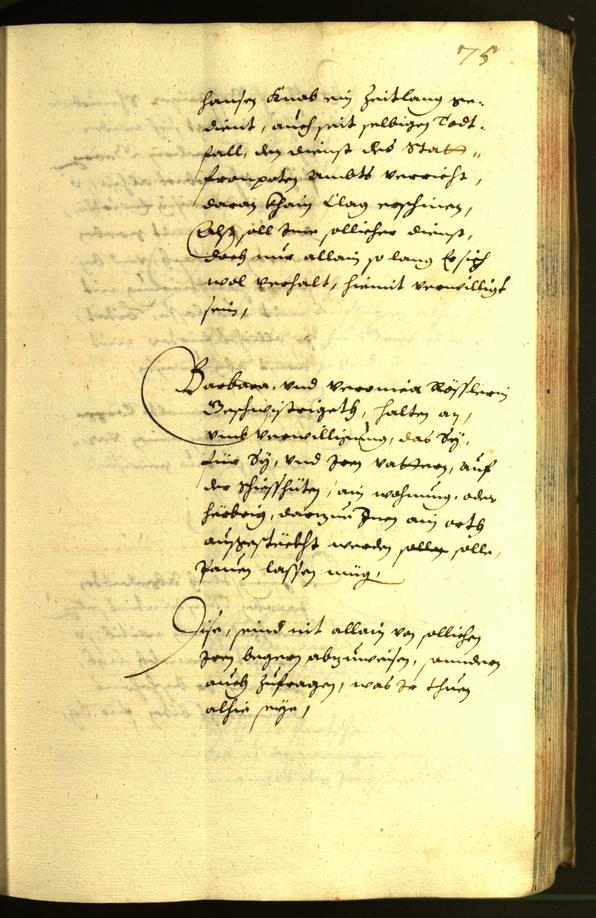 75
hansen Knab ein Zeitlang ge¬
dient, auch seit selbigen Todt¬
fall, den dienst des Statt¬
fronpoten Ambts verricht,
daran khain Clag erschinen,
Also soll Ime sollicher dienst,
doch nur allain so lang Er sich
wol verhalt, hiemit verwilligt
sein,
Barbara, vnd Veronica Rösslerin
Geschwistrigeth, halten an,
vmb verwilligung, das Sy,
für Sy, vnd Iren vattern, auf
der Schiesshüten, ain wohnung, oder
herbrig, darzue Inen ain orth
ausgestöckht werden solle,
Pauen lassen müg,
Dise, seind nit allain von sollichen
Irem begern abzuweisen, sonndern
auch zufragen, was Ir thuen
alhie seye,